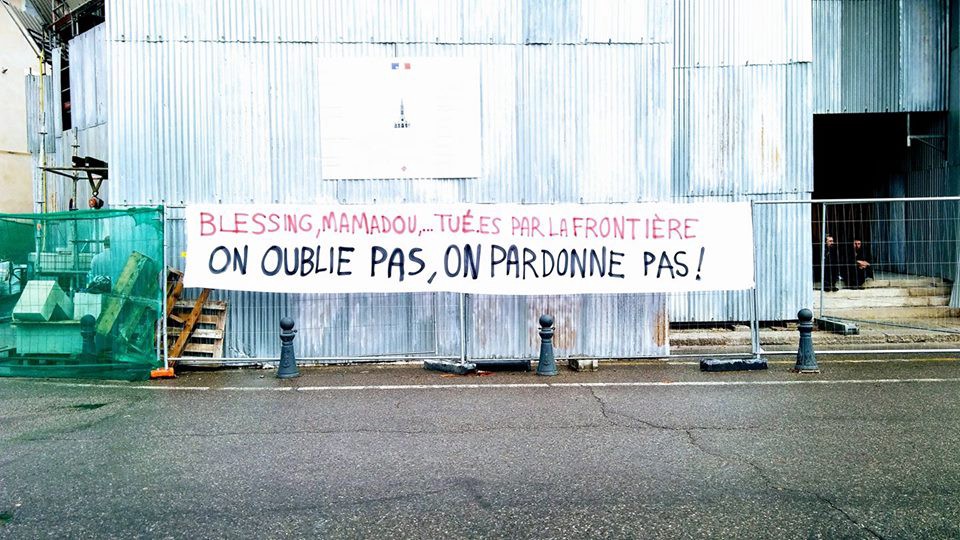 BLESSING, MAMADOU,... TUÉ.ES PAR LA FRONTIÈRE
ON OUBLIE PAS, ON PARDONNE PAS !